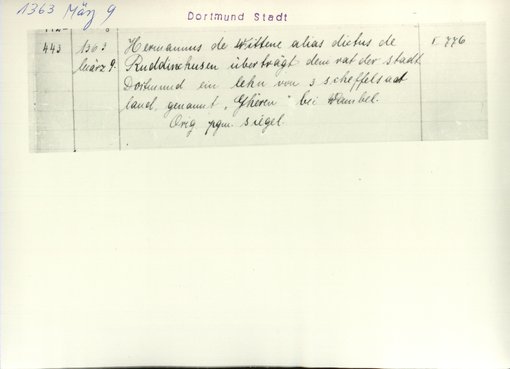 1363 März 9
Dortmund Stadt
443 1363 Hermannus de Wittene alias dictus de I 776
März 9. Ruddinchusen überträgt dem rat der stadt
Dortmund ein lehn von 3 scheffelsaat
land, genannt „Gheren" bei Wambel.
Orig. pgm. Siegel.